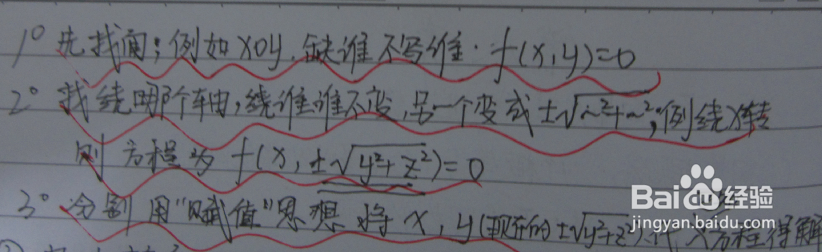 1° 先找面；例如 XOY. 缺谁不写谁. f(x,y)=0
2° 找绕哪个轴，绕谁谁不变，另一个变成±√~²+~²；例绕X转
则方程为 f(x,±√y²+z²)=0
3° 分别用“赋值”思想 将 x, y(现在的±√y²+z²) 代入方程得解
Baidu经验
jingyan.baidu.com